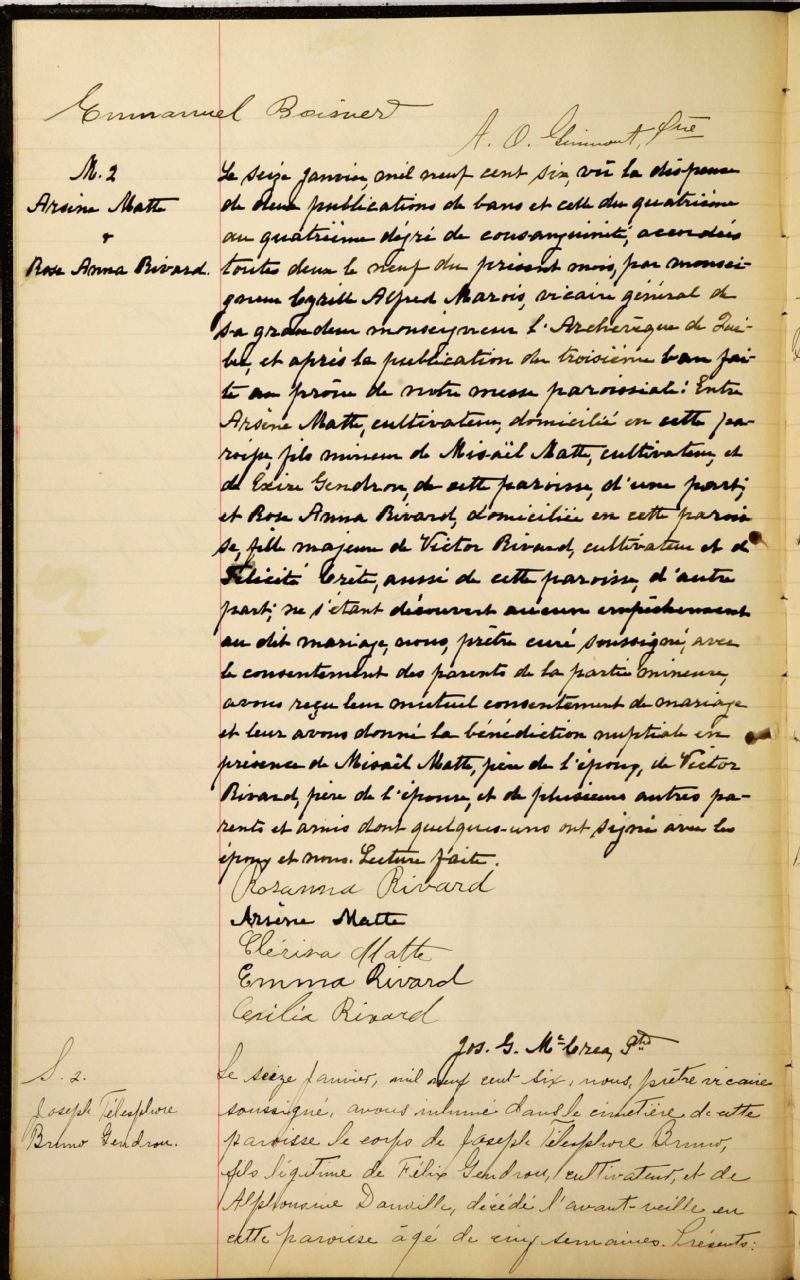 Emmanuel Boisvert
A. O. Ptre
M. 2
Arsène Matte
&
Rose Anna Rivard.
Le seize janvier, mil neuf cent six, vû la dispense
de deux publications de bans et celle du quatrième
au quatrième dégré de consanguinité, accordées
toutes deux le neuf du présent mois, par monsei-
gneur Cyrill Alfred Marois, vicaire général de
sa grandeur monseigneur l'Archevêque de Qué-
bec, et après la publication du troisième ban fai-
te au prône de notre messe paroissiale: Entre
Arsène Matte, cultivateur, domicilié en cette pa-
roisse, fils mineur de Misaël Matte, cultivateur, et
de Exire Gendron, de cette paroisse, d'une part;
et Rose Anna Rivard, domiciliée en cette parois
se, fille majeure de Victor Rivard, cultivateur et de
Félicité Crête, aussi de cette paroisse, d'autre
part; ne s'étant découvert aucun empêchement
au dit mariage, nous, prêtre curé soussigné, avec
le consentement des parents de la partie mineure,
avons reçu leur mutuel consentement de mariage
et leur avons donné la bénédiction nuptiale en
présence de Misaël Matte, père de l'époux, de Victor
Rivard, père de l'épouse, et de plusieurs autres pa-
rents et amis dont quelques-uns ont signé avec les
époux et nous. Lecture faite.
Rosanna Rivard
Arsène Matte
Clérina Matte
Emma Rivard
Cecilia Rivard
Jos. G. McCrea, Ptre
S. 2.
Joseph Télesphore
Bruno Gendron.
Le seize Janvier, mil neuf cent six, nous, prêtre vicaire
soussigné, avons inhumé dans le cimetière de cette
paroisse le corps de Joseph Télesphore Bruno,
fils légitime de Félix Gendron, cultivateur, et de
Alphonsine Danville, décédé l'avant-veille en
cette paroisse âgé de cinq semaines. Présents: